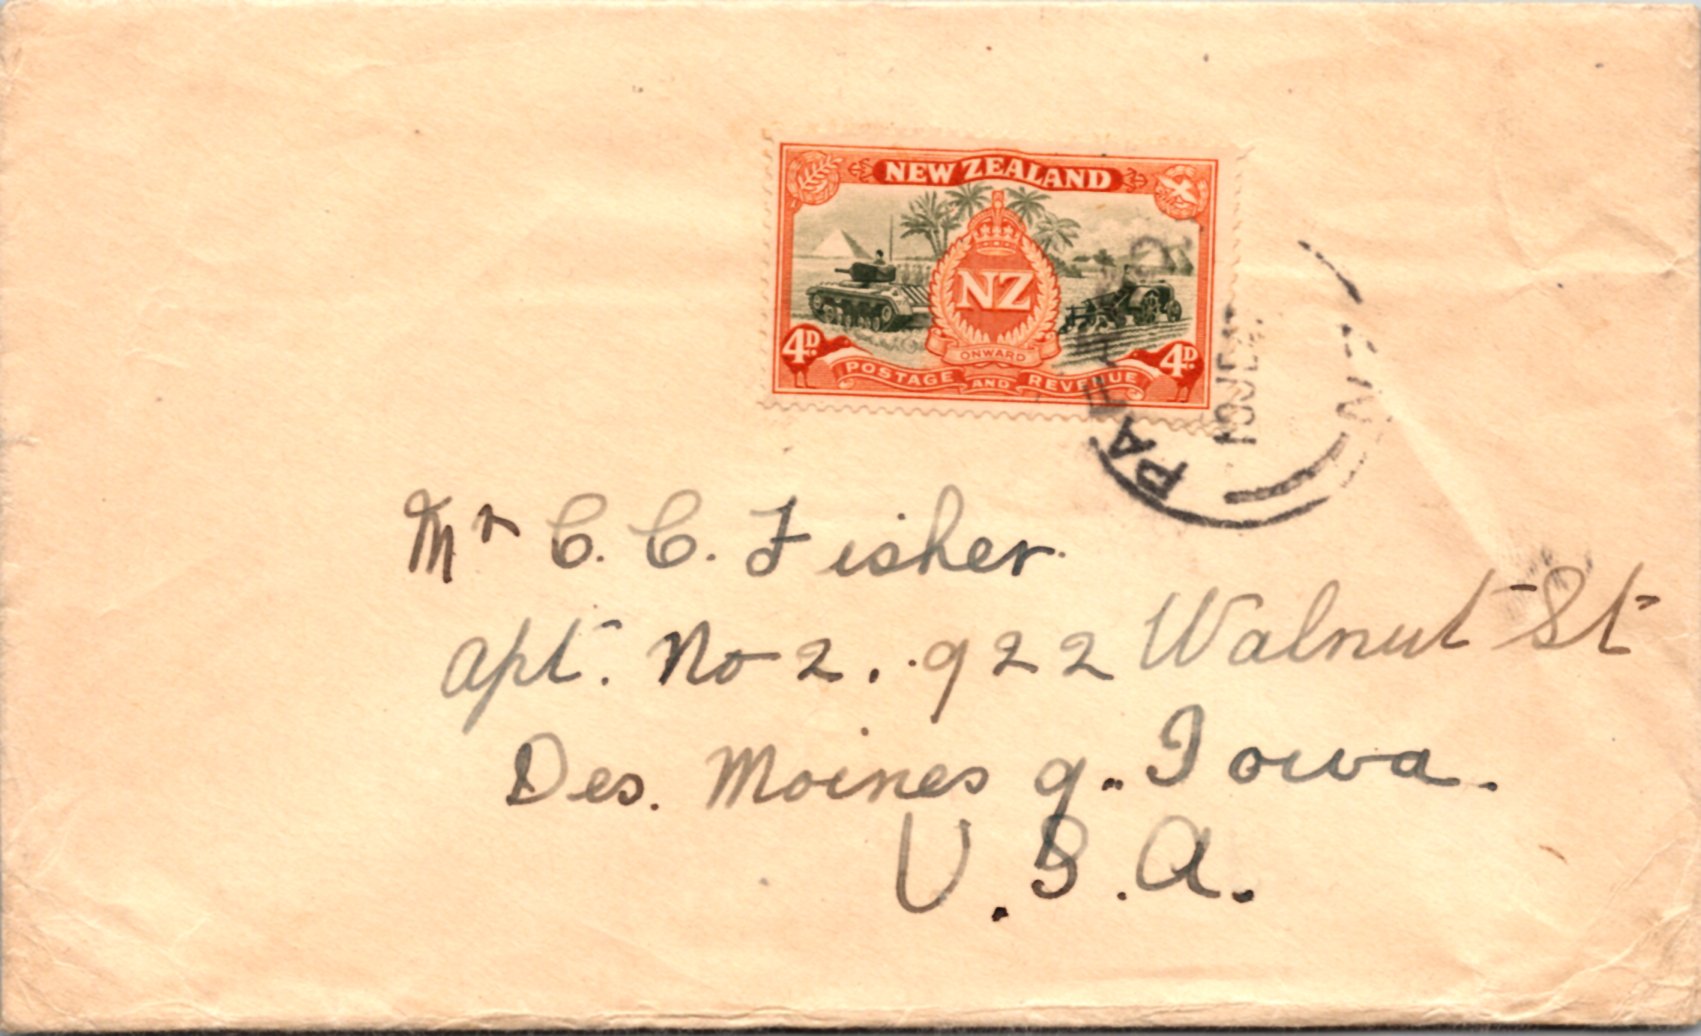 NEW ZEALAND
NZ
4D. 4D.
ONWARD
POSTAGE AND REVENUE
N.Z
Mr C. C. Fisher.
Apt. No 2. 922 Walnut St
Des. Moines 9. Iowa.
U.S.A.